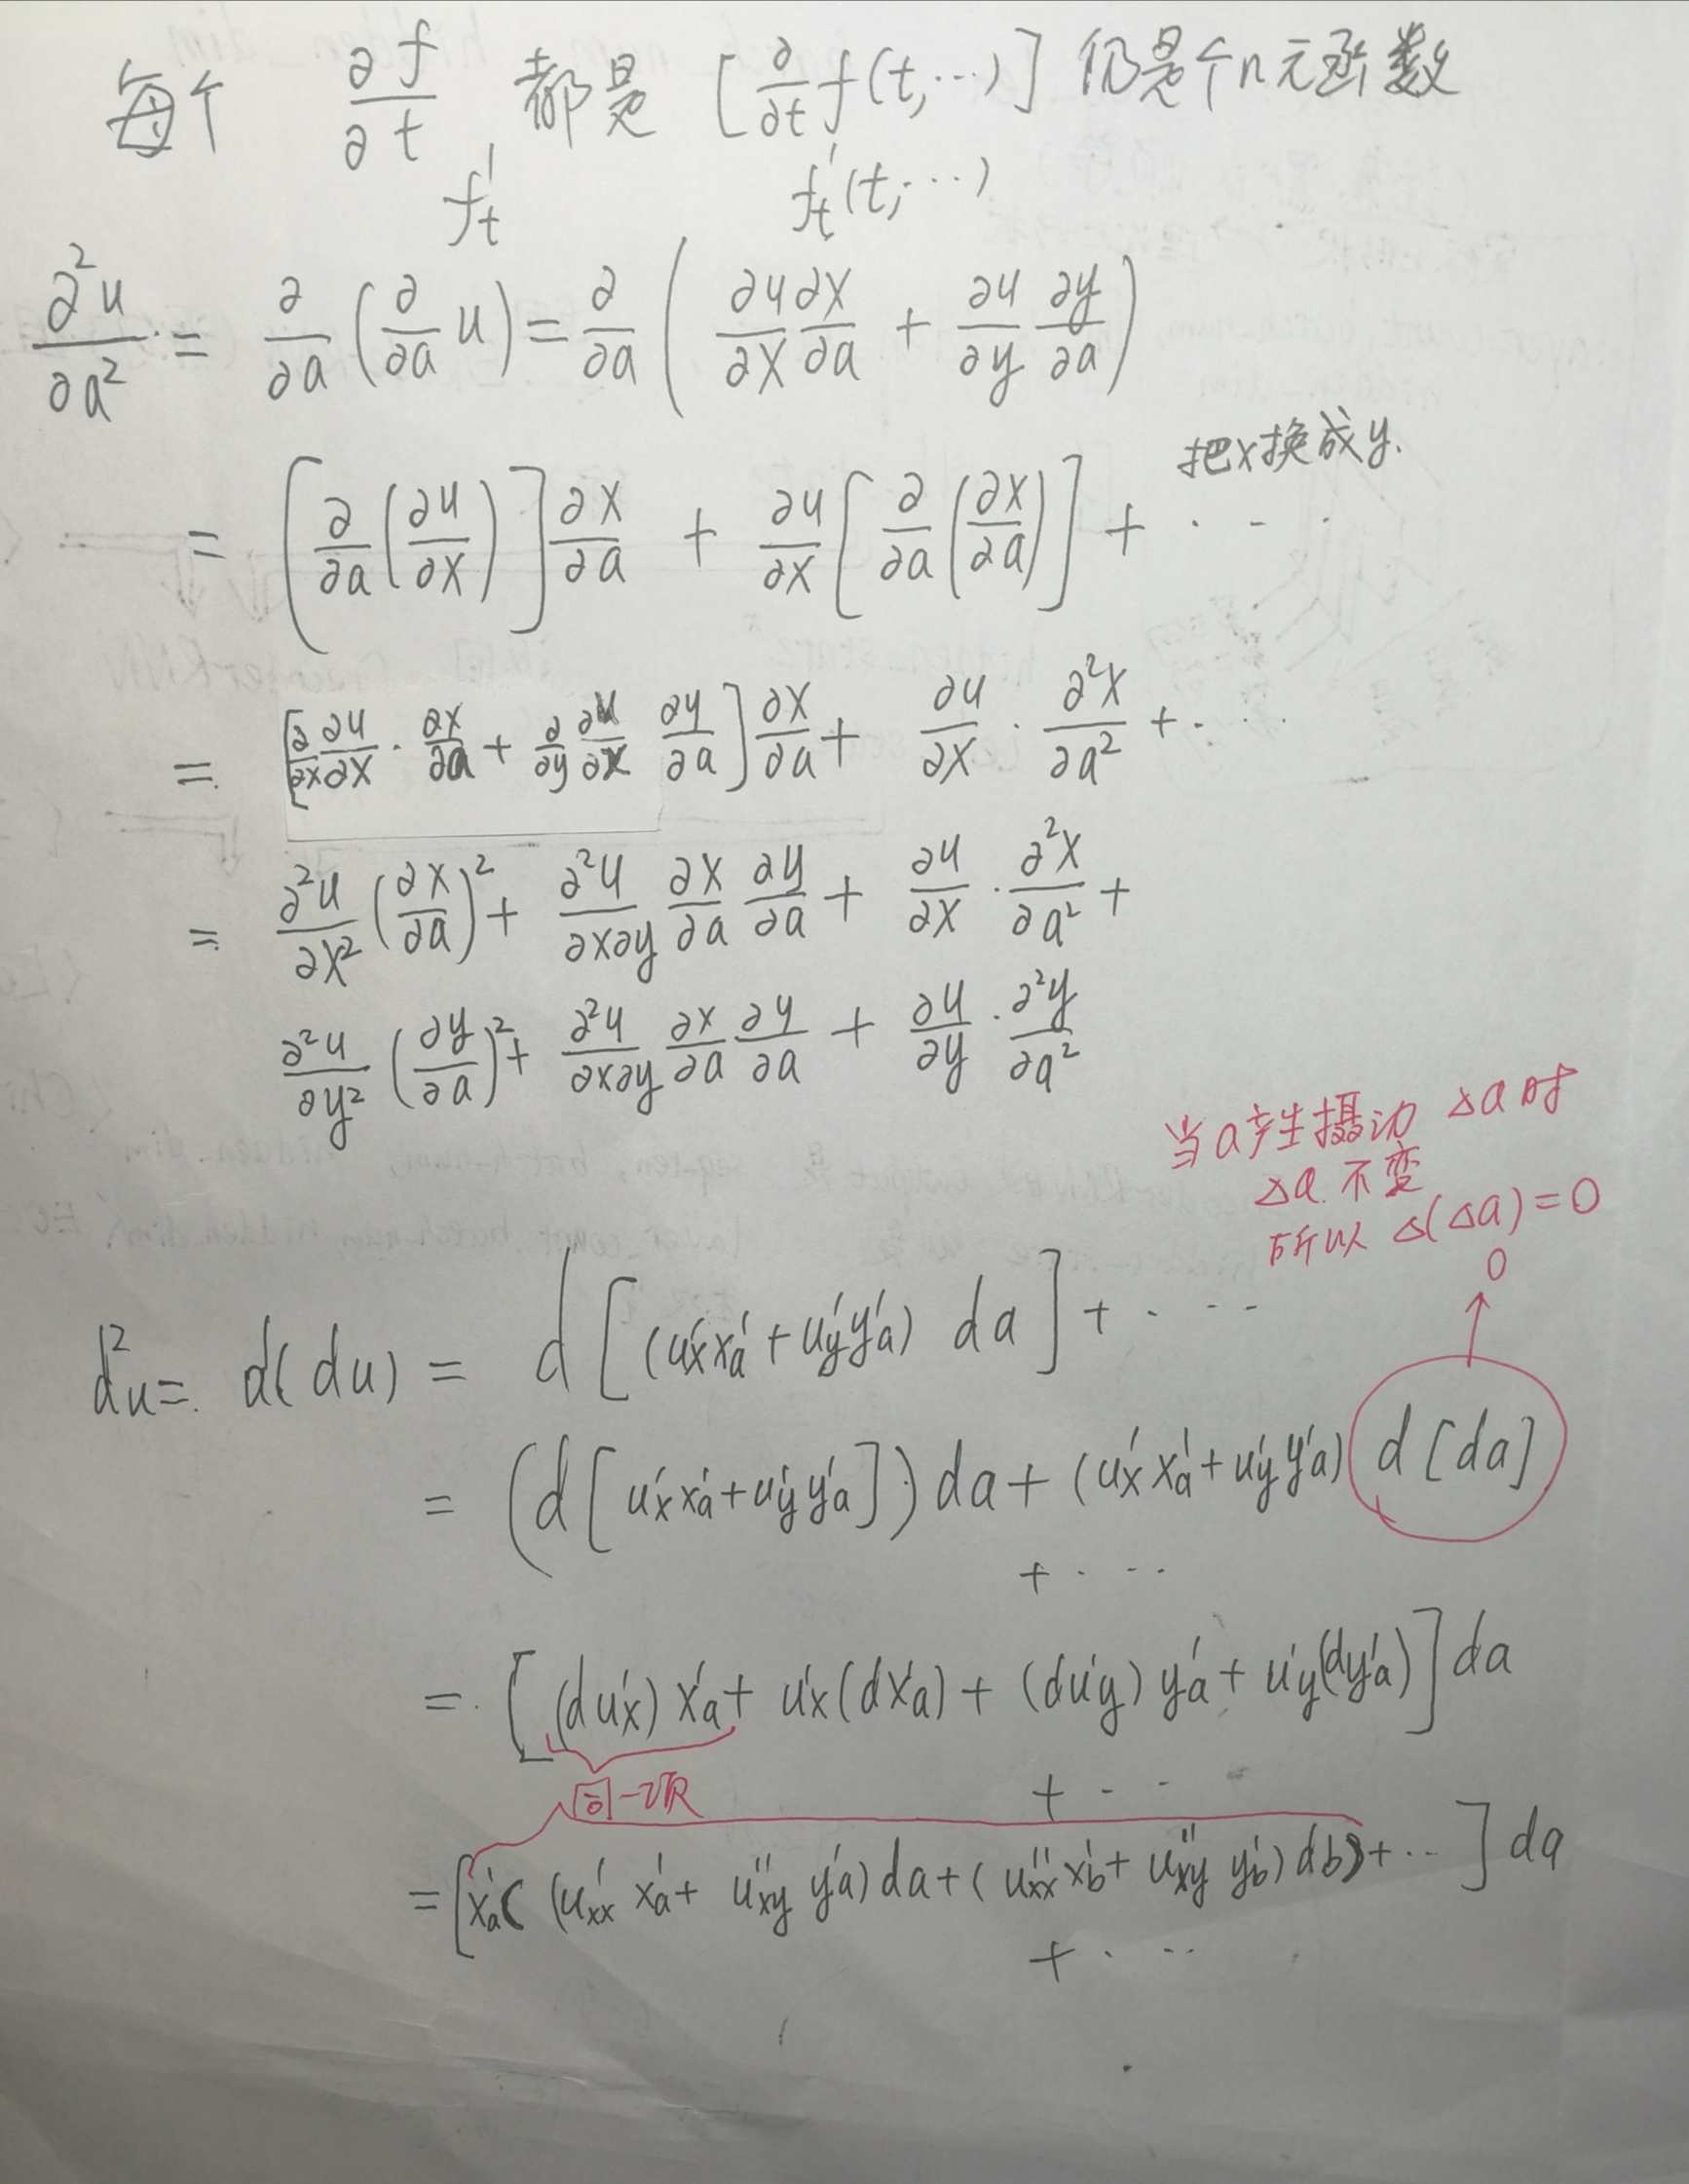 每个 ∂f/∂t 都是 [∂/∂t f(t,…)] 仍是个n元函数
f't f't(t,…)
∂²u/∂a² = ∂/∂a (∂/∂a u) = ∂/∂a ( ∂u/∂x ∂x/∂a + ∂u/∂y ∂y/∂a )
把x换成y.
= [∂/∂a (∂u/∂x)] ∂x/∂a + ∂u/∂x [∂/∂a (∂x/∂a)] + ...
= [∂/∂x ∂u/∂x · ∂x/∂a + ∂/∂y ∂u/∂x ∂y/∂a] ∂x/∂a + ∂u/∂x · ∂²x/∂a² + ...
= ∂²u/∂x² (∂x/∂a)² + ∂²u/∂x∂y ∂x/∂a ∂y/∂a + ∂u/∂x · ∂²x/∂a² +
∂²u/∂y² (∂y/∂a)² + ∂²u/∂x∂y ∂x/∂a ∂y/∂a + ∂u/∂y · ∂²y/∂a²
当a产生摄动 △a时
△a 不变
所以 △(△a)=0
0
d²u = d(du) = d[(u'x x'a + u'y y'a) da] + ...
= (d[u'x x'a + u'y y'a]) da + (u'x x'a + u'y y'a) d[da]
+ ...
= [(du'x) x'a + u'x(dx'a) + (du'y) y'a + u'y(dy'a)] da
同一项
+ ...
= [x'a( (u'xx x'a + u''xy y'a) da + (u''xx x'b + u''xy y'b) db) + ...] da
+ ...